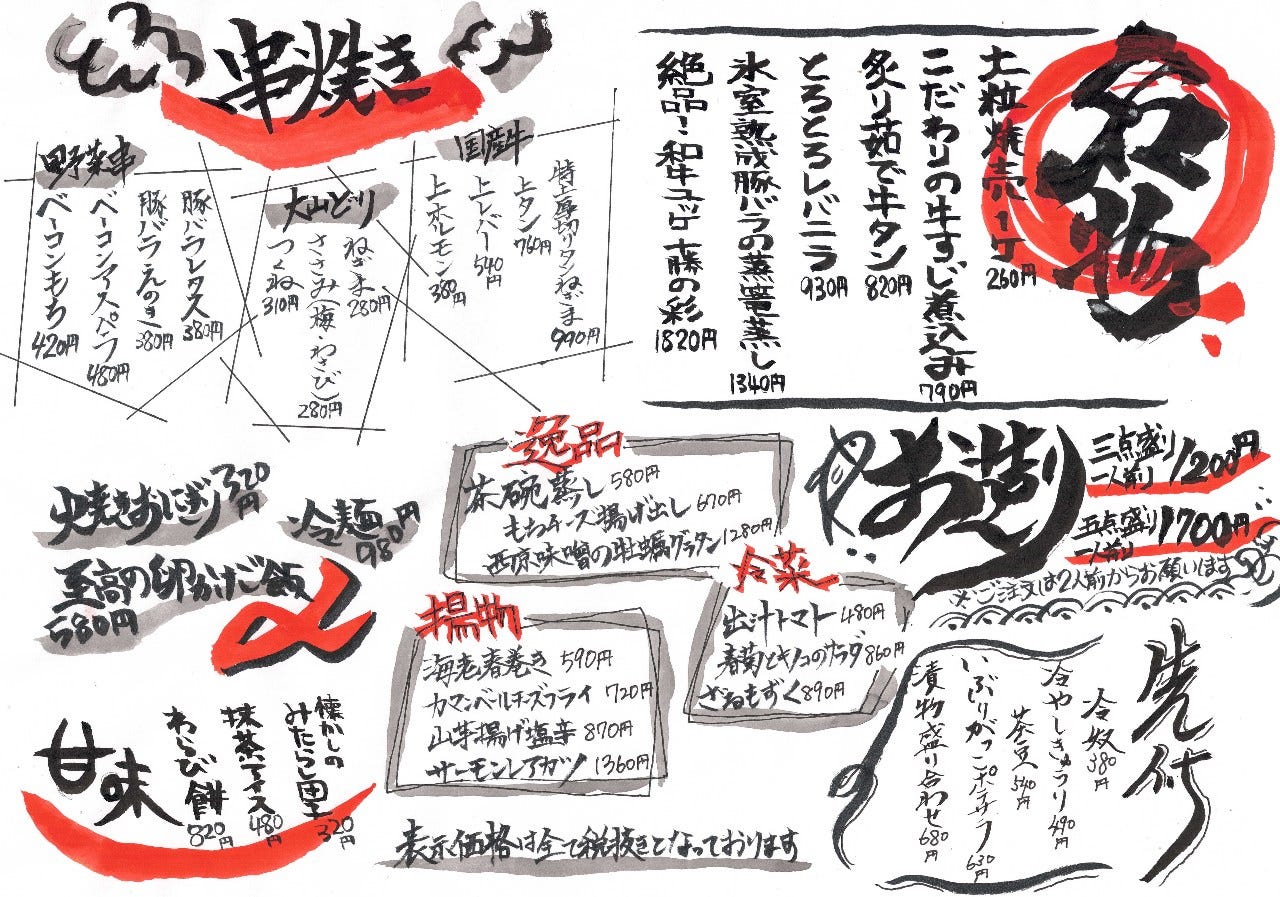 串焼き
野菜串
豚バラレタス 380円
豚バラえのき 380円
ベーコンアスパラ 480円
ベーコンもち 420円
大山どり
ねぎま 280円
ささみ(梅・わさび) 280円
つくね 310円
国産牛
特上厚切りタンねぎま 990円
上タン 760円
上レバー 540円
上ホルモン 380円
名物
土粒焼売1ケ 260円
こだわりの牛すじ煮込み 790円
炙り茹で牛タン 820円
とろとろレバニラ 930円
氷室熟成豚バラの蒸篭蒸し 1340円
絶品!和牛ユッケ 土藤の彩 1820円
焼きおにぎり 320円
冷麺 980円
至高の卵かけご飯 580円
〆
逸品
茶碗蒸し 580円
もちチーズ揚げ出し 670円
西京味噌の牡蠣グラタン 1280円
お造り
三点盛り 一人前 1200円
五点盛り 一人前 1700円
※ご注文は2人前からお願いします
冷菜
出汁トマト 480円
春菊とキノコのサラダ 860円
ざるもずく 890円
揚物
海老春巻き 590円
カマンベールチーズフライ 720円
山芋揚げ塩辛 870円
サーモンレアカツ 1360円
先付
冷奴 380円
冷やしきゅうり 490円
茶豆 540円
いぶりがっこポテサラ 630円
漬物盛り合わせ 680円
甘味
懐かしのみたらし団子 320円
抹茶アイス 480円
わらび餅 820円
表示価格は全て税抜きとなっております